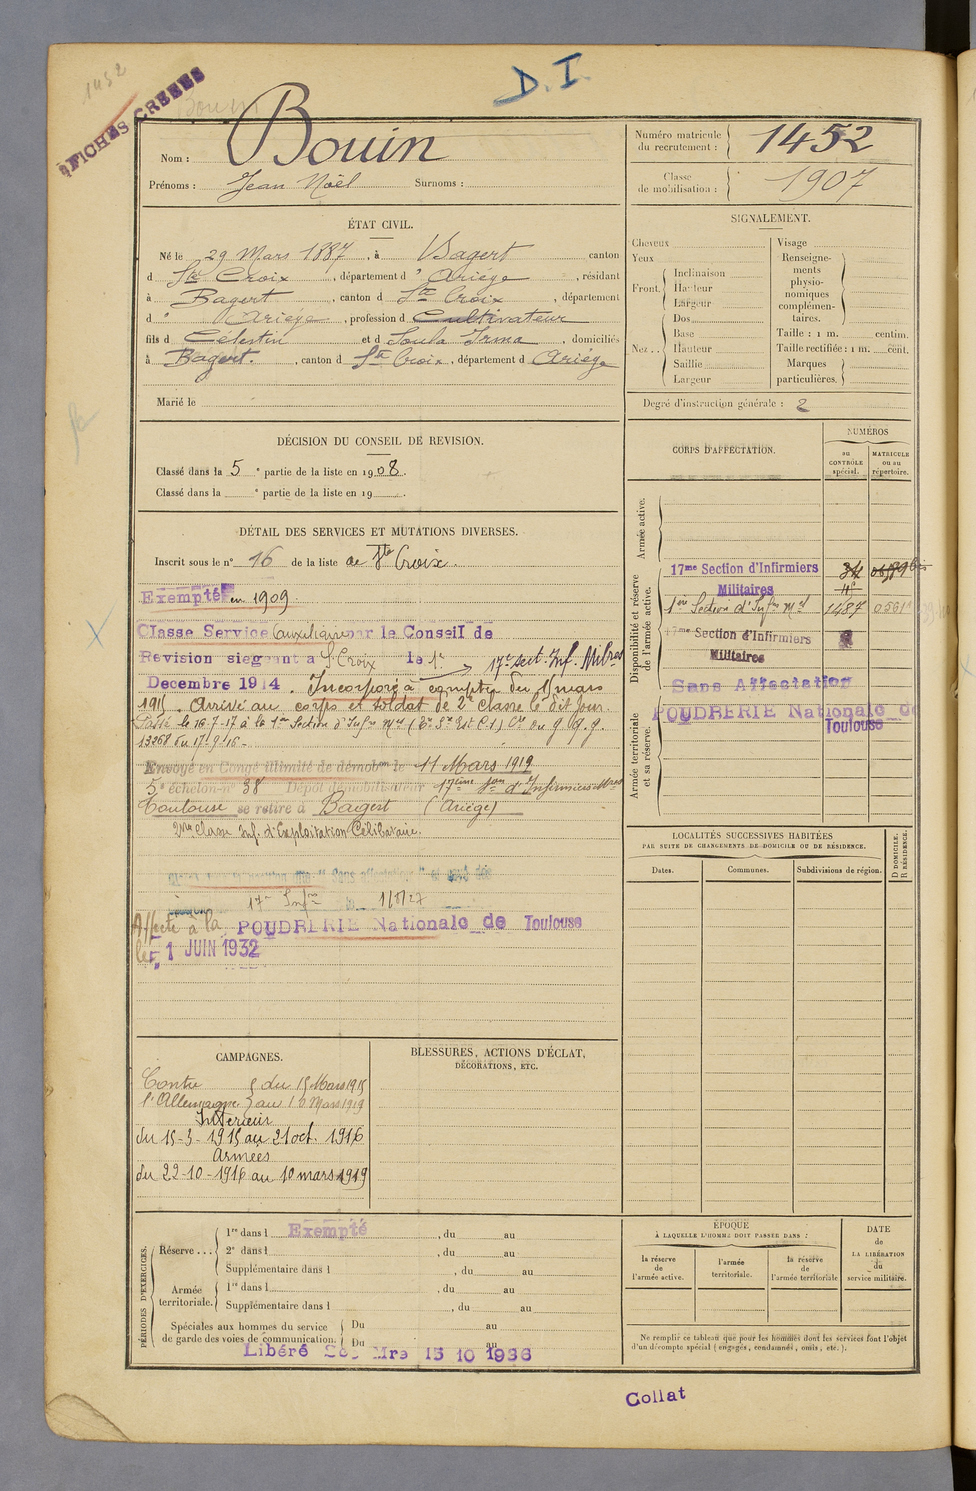 1452
FICHES CREEES
Bouin
D.I.
Nom : Bouin
Prénoms : Jean Noël Surnoms :
Numéro matricule du recrutement : 1452
Classe de mobilisation : 1907
ÉTAT CIVIL.
Né le 29 Mars 1887, à Bagert canton
d Ste Croix, département d' Ariège, résidant
à Bagert, canton d Ste Croix, département
d' Ariège, profession d Cultivateur
fils d Célestin et d Soula Irma, domiciliés
à Bagert., canton d Ste Croix, département d Ariège
Marié le
SIGNALEMENT.
Cheveux
Yeux
Front.
Inclinaison
Hauteur
Largeur
Nez..
Dos
Base
Hauteur
Saillie
Largeur
Visage
Renseignements physionomiques complémentaires.
Taille : 1 m. centim.
Taille rectifiée : 1 m. cent.
Marques particulières.
Degré d'instruction générale : 2
DÉCISION DU CONSEIL DE REVISION.
Classé dans la 5e partie de la liste en 1908.
Classé dans la e partie de la liste en 19
DÉTAIL DES SERVICES ET MUTATIONS DIVERSES.
Inscrit sous le n° 16 de la liste de Ste Croix.
Exempté en 1909.
Classe Service auxiliaire par le Conseil de
Revision siegeant a St Croix le 1er → 17e Sect. Inf. Milres
Decembre 1914. Incorporé à compter du 15 mars
1915. Arrivé au corps et soldat de 2e classe le dit jour.
Passé le 16-7-17 à la 1ère Section d'Infres Mres
13268 du 17-9-16-
Envoyé en Congé illimité de démobon le 11 Mars 1919
5e échelon n° 38 Dépôt démobilisateur 17ème Son d'Infirmiers Mres
Toulouse se retire à Bagert (Ariège)
17e Infre 1/5/27
Affecté à la POUDRERIE Nationale de Toulouse
le 1 JUIN 1932
CORPS D'AFFECTATION.
NUMÉROS
au CONTRÔLE spécial.
MATRICULE ou au répertoire.
Armée active.
Disponibilité et réserve de l'armée active.
Armée territoriale et sa réserve.
17me Section d'Infirmiers
Militaires
1ère Section d'Infres Mres 1487
17me Section d'Infirmiers
Militaires
Sans Affectation
POUDRERIE Nationale de
Toulouse
LOCALITÉS SUCCESSIVES HABITÉES
PAR SUITE DE CHANGEMENTS DE DOMICILE OU DE RÉSIDENCE.
Dates.
Communes.
Subdivisions de région.
D DOMICILE.
R RÉSIDENCE.
CAMPAGNES.
Contre du 15 Mars 1915
l'Allemagne au 10 Mars 1919
Intérieur
du 15-3-1915 au 21 oct. 1916
Armées
du 22-10-1916 au 10 mars 1919
BLESSURES, ACTIONS D'ÉCLAT,
DÉCORATIONS, ETC.
PÉRIODES D'EXERCICES.
Réserve...
1re dans l Exempté, du au
2e dans l, du au
Supplémentaire dans l, du au
Armée territoriale.
1re dans l, du au
Supplémentaire dans l, du au
Spéciales aux hommes du service de garde des voies de communication.
Du au
Du au
Libéré Mre 15 10 1936
ÉPOQUE
À LAQUELLE L'HOMME DOIT PASSER DANS :
la réserve de l'armée active.
l'armée territoriale.
la réserve de l'armée territoriale
DATE DE LA LIBÉRATION du service militaire.
Ne remplir ce tableau que pour les hommes dont les services font l'objet
d'un décompte spécial (engagés, condamnés, omis, etc.).
Collat